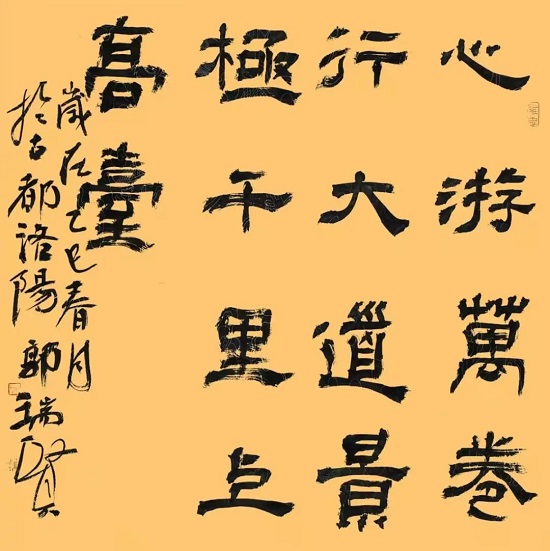 心游萬卷
行大道景
極千里上
高臺
歲在乙巳春月
於古都洛陽郭瑞